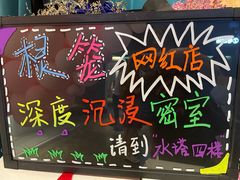 网红店
深度沉浸密室
请到"水塔四楼"